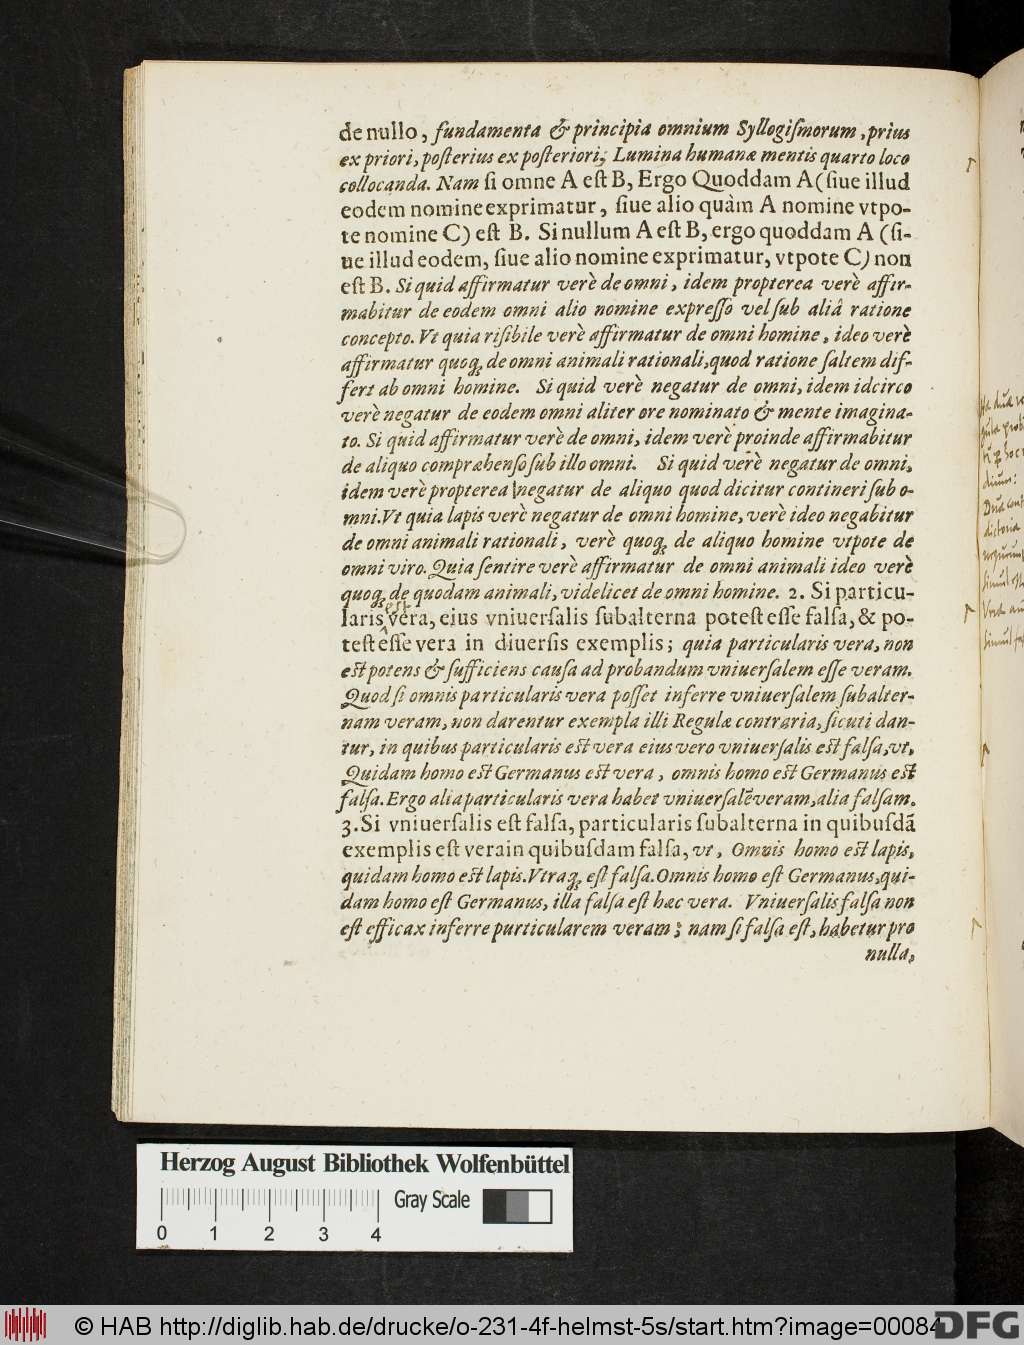 de nullo, fundamenta & principia omnium Syllogiſmorum, prius
ex priori, poſterius ex poſteriori; Lumina humanæ mentis quarto loco
collocanda. Nam ſi omne A eſt B, Ergo Quoddam A (ſiue illud
eodem nomine exprimatur, ſiue alio quàm A nomine vtpo-
te nomine C) eſt B. Si nullum A eſt B, ergo quoddam A (ſi-
ue illud eodem, ſiue alio nomine exprimatur, vtpote C) non
eſt B. Si quid affirmatur verè de omni, idem propterea verè affir-
mabitur de eodem omni alio nomine expreſſo vel ſub aliâ ratione
concepto. Vt quia riſibile verè affirmatur de omni homine, ideo verè
affirmatur quoq; de omni animali rationali, quod ratione ſaltem dif-
fert ab omni homine. Si quid verè negatur de omni, idem idcirco
verè negatur de eodem omni aliter ore nominato & mente imagina-
to. Si quid affirmatur verè de omni, idem verè proinde affirmabitur
de aliquo compræhenſo ſub illo omni. Si quid verè negatur de omni,
idem verè propterea negatur de aliquo quod dicitur contineri ſub o-
mni. Vt quia lapis verè negatur de omni homine, verè ideo negabitur
de omni animali rationali, verè quoq; de aliquo homine vtpote de
omni viro. Quia ſentire verè affirmatur de omni animali ideo verè
quoq; de quodam animali, videlicet de omni homine. 2. Si particu-
est
laris vera, eius vniuerſalis ſubalterna poteſt eſſe falſa, & po-
teſt eſſe vera in diuerſis exemplis; quia particularis vera, non
eſt potens & ſufficiens cauſa ad probandum vniuerſalem eſſe veram.
Quod ſi omnis particularis vera poſſet inferre vniuerſalem ſubalter-
nam veram, non darentur exempla illi Regulæ contraria, ſicuti dan-
tur, in quibus particularis eſt vera eius vero vniuerſalis eſt falſa, vt,
Quidam homo eſt Germanus eſt vera, omnis homo eſt Germanus eſt
falſa. Ergo alia particularis vera habet vniuerſalē veram, alia falſam.
3. Si vniuerſalis eſt falſa, particularis ſubalterna in quibuſdā
exemplis eſt vera in quibuſdam falſa, vt, Omnis homo eſt lapis,
quidam homo eſt lapis. Vtraq; eſt falſa. Omnis homo eſt Germanus, qui-
dam homo eſt Germanus, illa falſa eſt hæc vera. Vniuerſalis falſa non
eſt efficax inferre purticularem veram; nam ſi falſa eſt, habetur pro
nulla,
Herzog August Bibliothek Wolfenbüttel
Gray Scale
0 1 2 3 4
© HAB http://diglib.hab.de/drucke/o-231-4f-helmst-5s/start.htm?image=00084
DFG